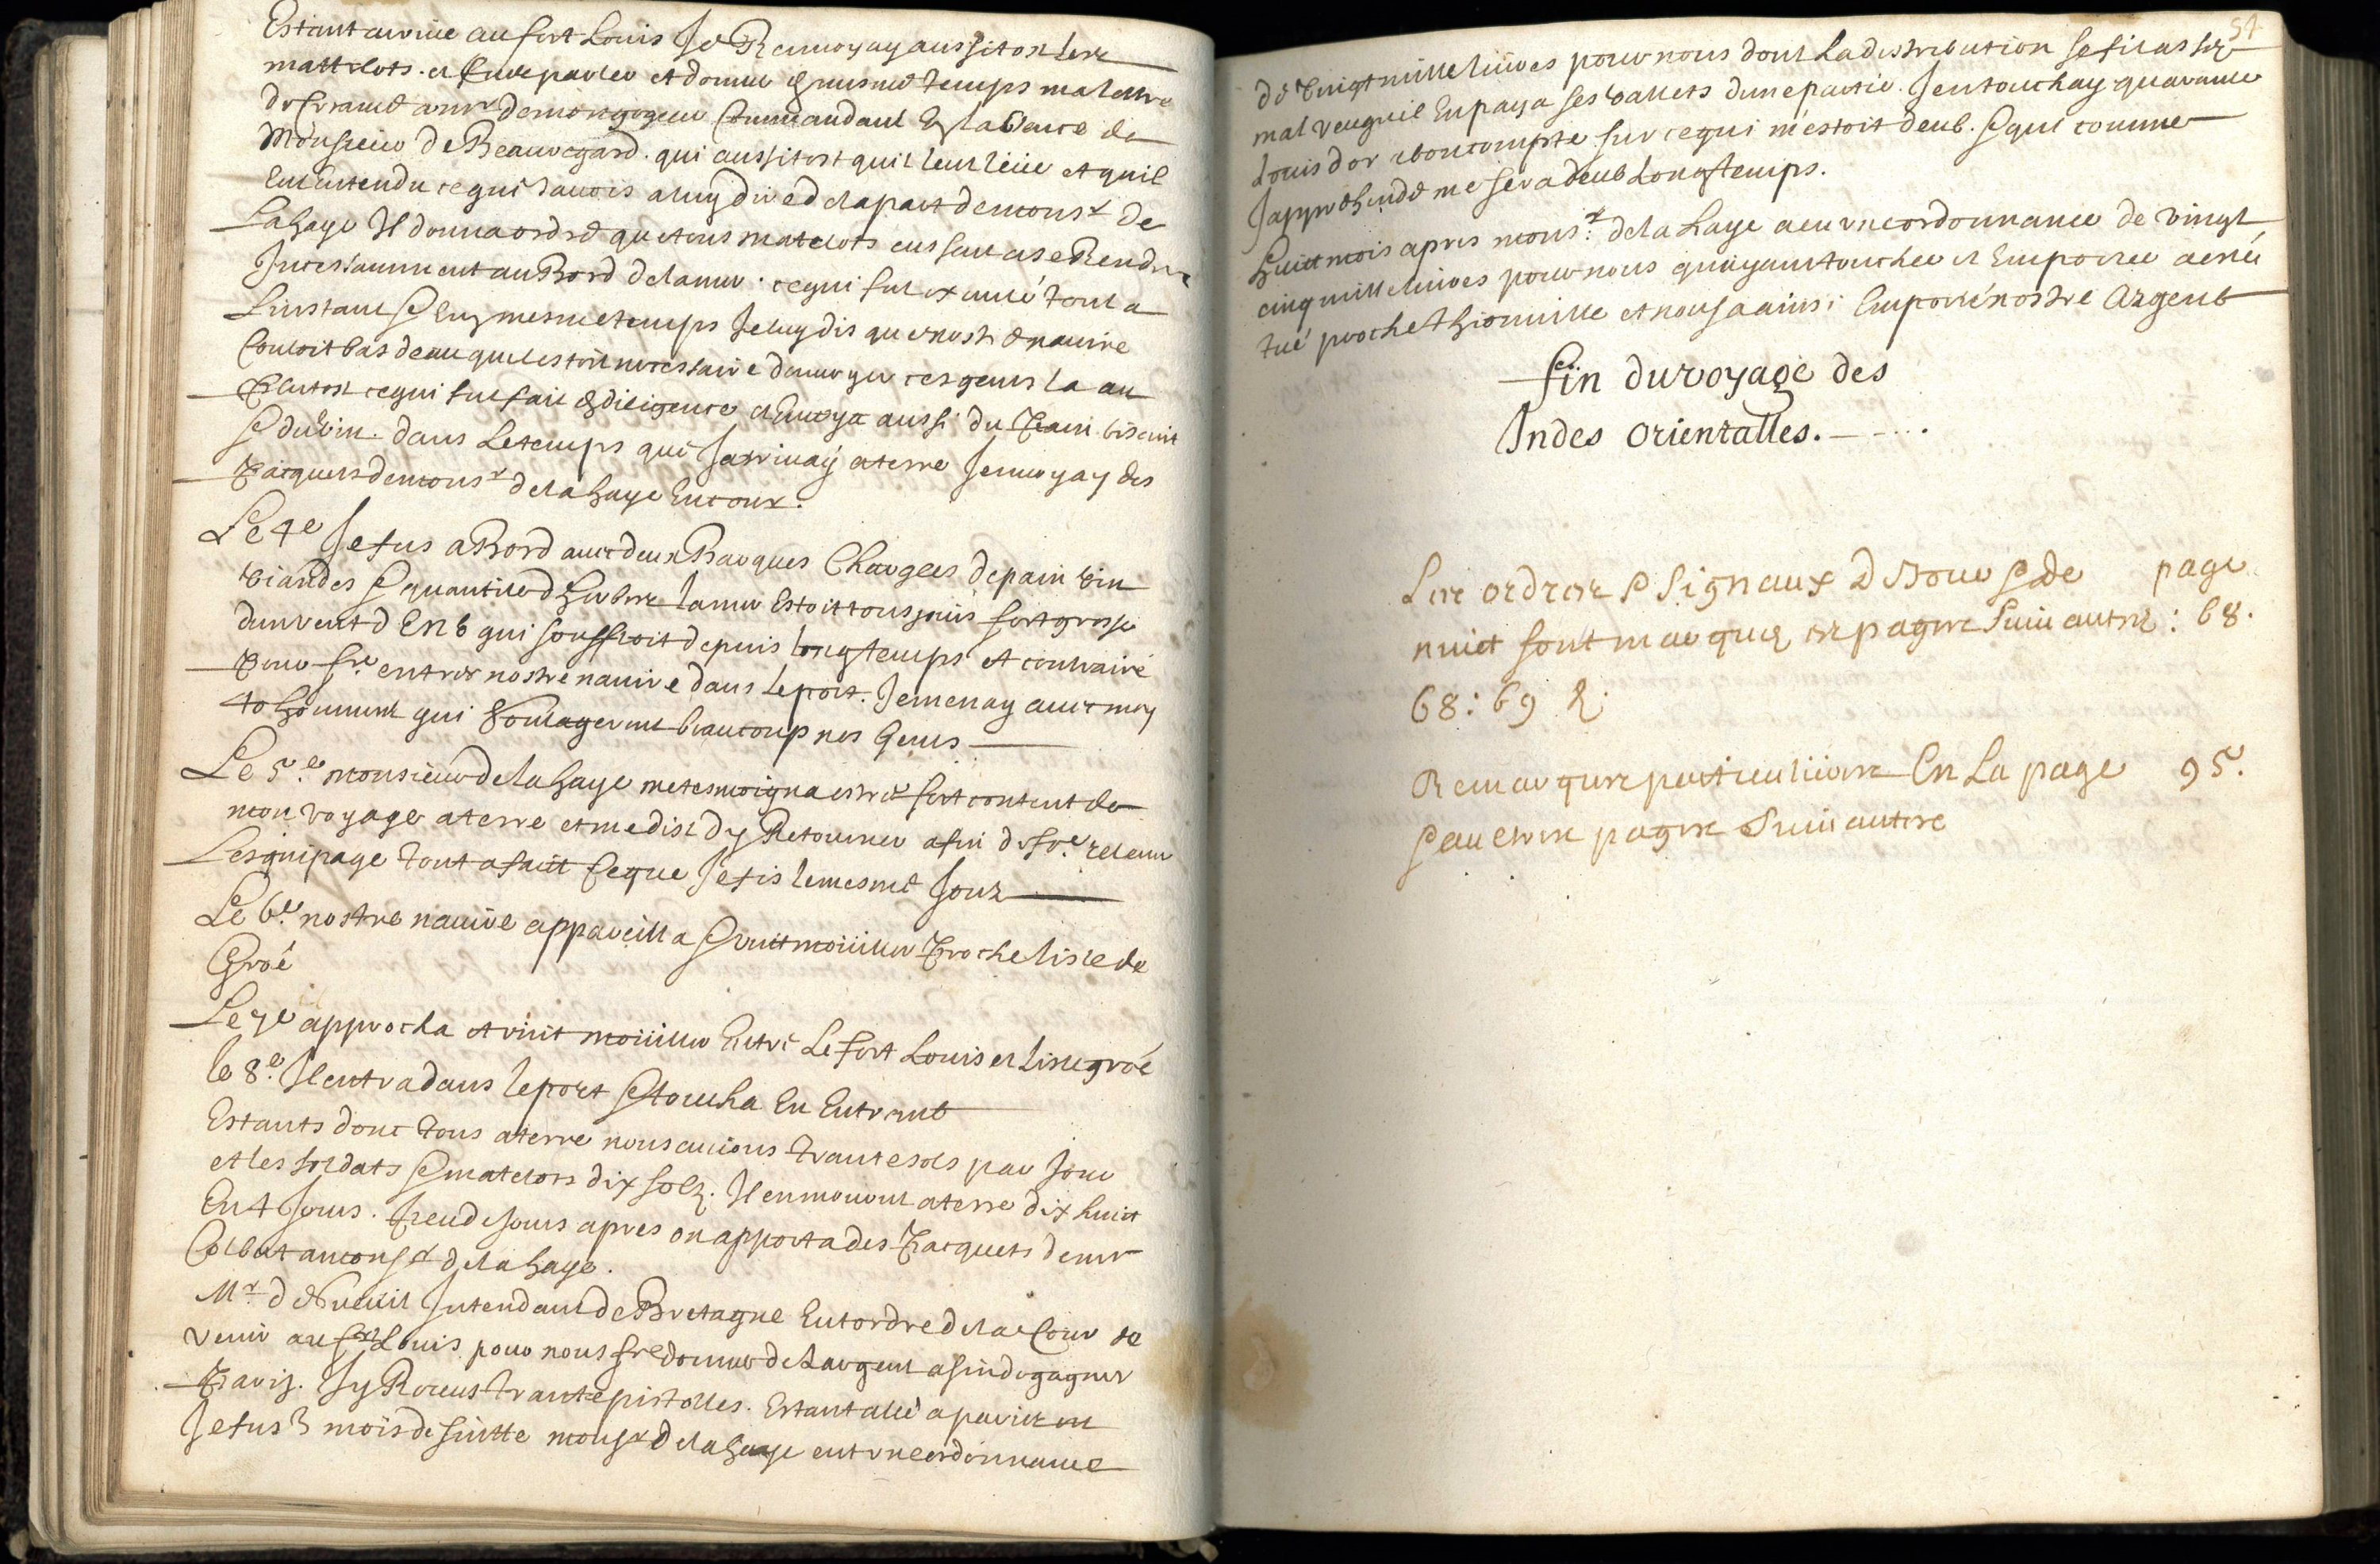 Estant arriué au fort Louis Je Renuoyay aussitost les
mattelots. et fus parler et donner & mesme temps ma lettre
de Creance a mr de Commandant En labsence de
Monsieur de Beauregard. qui aussitost quil leut leüe et quil
Eut Entendu ce qui Jauois a luy dire de la part de monsr de
Lahaye Il donna ordre que tous matelots eussent a se Rendre
Incessamment au Bord de la mer. ce qui fut exsecuté tout a
Linstant & En mesme temps Je luy dis que nostre nauire
Couloit bas deau quil estoit necessaire denuoyer ces gens la au
Plutost ce qui fut fait & diligence et Enuoya aussi du Pain biscuit
& du Vin. dans Le temps que Jarriuay a terre Jenuoyay des
Pacquets de monsr de la haye En cour.
Le 4e Je fus a Bord auec deux Barques Chargees de pain vin
viandes & quantité dherbes la mer Estoit tousjours fort grosse
dun vent d En6 qui souffloit depuis longtemps et contraire
Pour fre entrer nostre nauire dans le port. Jemenay auec moy
40 hommes qui Soulagerent beaucoup nos Gens
Le 5e. monsieur de la haye me tesmoigna estre fort content de
mon voyage a terre et me dist dy Retourner afin de fre. releuer
Lesquipage tout a fait Ce que Je fis le mesme Jour
Le 6e. nostre nauire appareilla & vint moüiller Proche lisle de
Groé
Le 7e approcha et vint moüiller Entre Le fort Louis et lisle groé
le 8e. Il entra dans le port & toucha En Entrant
Estants donc tous a terre nous auions trante sols par Jour
et les soldats & matelots dix solz. Il en mourut a terre dix huict
En 4 Jours. Peu de Jours apres on apporta des Pacquets de mr
Colbert a monsr de la haye.
Mr. de Intendant de Bretagne Eut ordre de la Cour de
venir au fort Louis pour nous fre donner de Largent afin de gagner
Pariz. Jy Receus trante pistolles. Estant allé a paris ou
Je fus 3 mois de suitte monsr de la haye eut vne ordonnance
51
de Vingt mille liures pour nous dont La distribution se fit assez
mal veu quil En paya ses vallets dune partie. Jen touchay quarante
Louis dor a bon compte sur ce qui mestoit deub. & qui comme
Japprehende me sera deub Longtemps.
huict mois apres monsr. de la haye a eu vne ordonnance de vingt
cinq mille liures pour nous quayant touchee et Emportee a esté
tué proche Thionuille et nous a ainsi Emporté nostre Argent
fin du voyage des
Indes orientalles.
Les ordres & Signaux de Jour & de page
nuict sont marquez es pages Suiuantes: 68.
68: 69 &.
Remarques particulieres En La page 95.
& autres pages Suiuantes